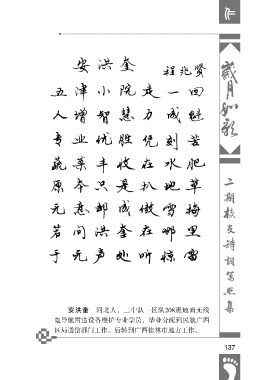 安洪奎 程兆贤
五津小院走一回
人增智慧力成继
专业优胜凭刻苦
蔬菜丰收在水肥
原本只是扒地草
无意却成傲雪梅
若问洪奎在哪里
于无声处听惊雷
安洪奎 河北人，三中队一区队208班地面无线
电导航雷达设备维护专业学员，毕业分配到民航广西
区局通信部门工作。后转到广西桂林市地方工作。
岁月如歌
二期校友诗词写照集
137